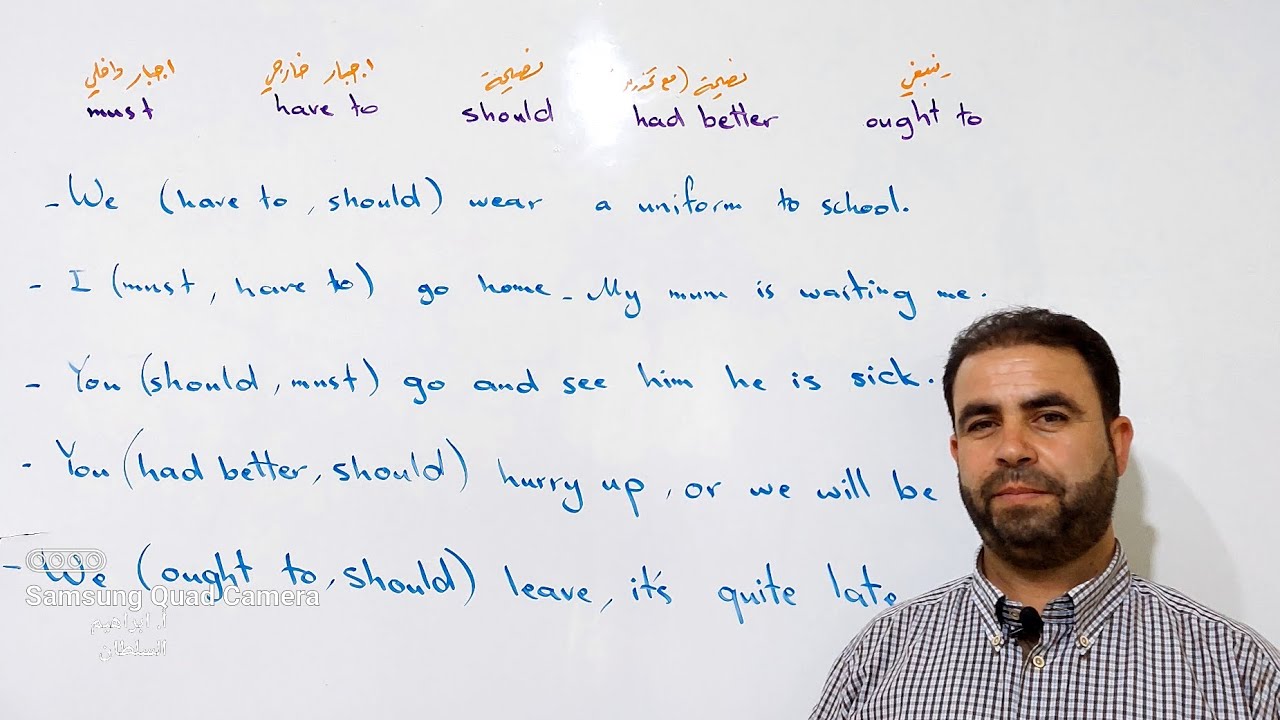 اجبار داخلي اجبار خارجي نصيحة نصيحة (مع ينبغي
must have to should had better ought to
- We (have to, should) wear a uniform to school.
- I (must, have to) go home - My mum is waiting me.
- You (should, must) go and see him he is sick.
- You (had better, should) hurry up, or we will be
- We (ought to, should) leave, it's quite late
Samsung Quad Camera
أ. ابراهيم
السلطان